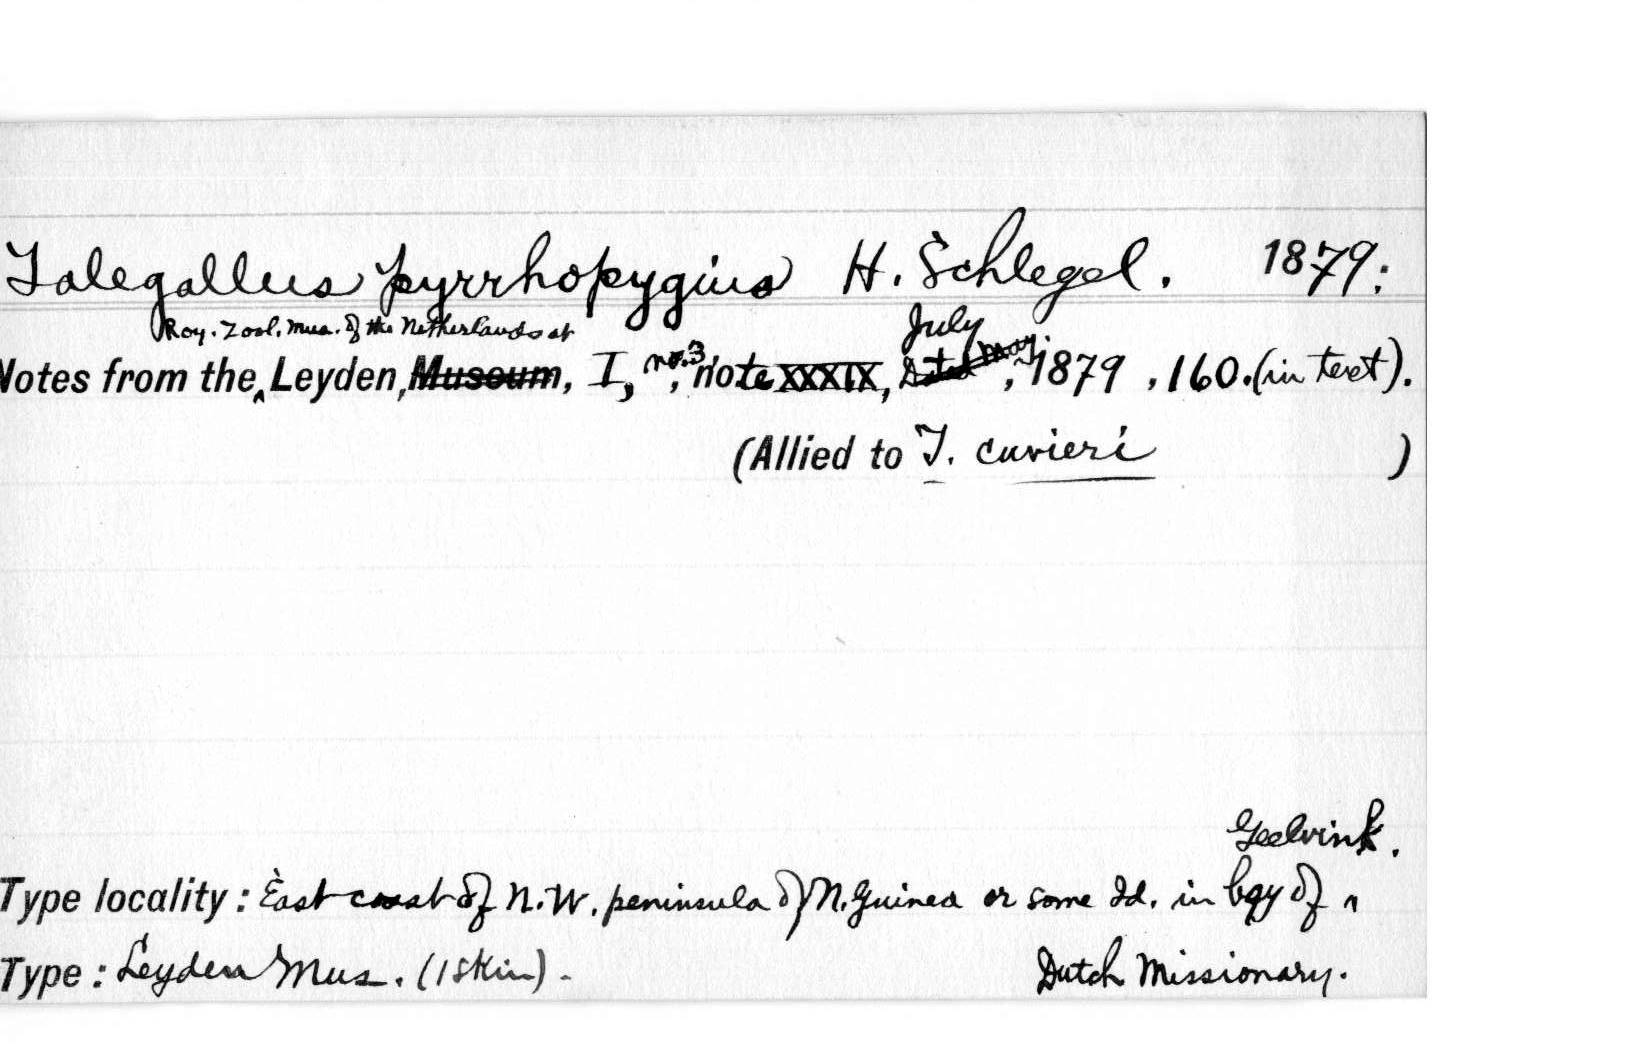 Talegallus pyrrhopygius H. Schlegel. 1879.
Roy. Zool. Mus. of the Netherlands at
July
Notes from the Leyden, Museum, I, no.3, note XXXIX, Dated May, 1879, 160. (in text).
(Allied to T. cuvieri )
Geelvink.
Type locality: East coast of N.W. peninsula of N. Guinea or some Id. in bay of "
Type: Leyden Mus. (1 skin). Dutch Missionary.